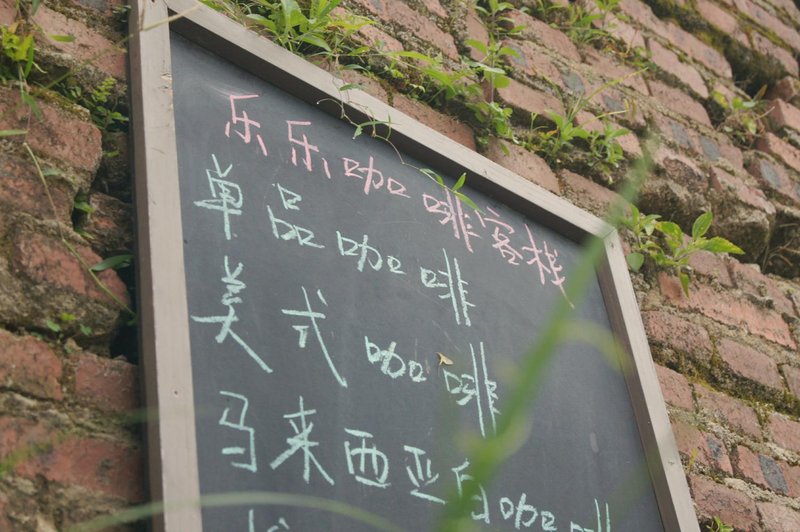 乐乐咖啡客栈
单品咖啡
美式咖啡
马来西亚白咖啡